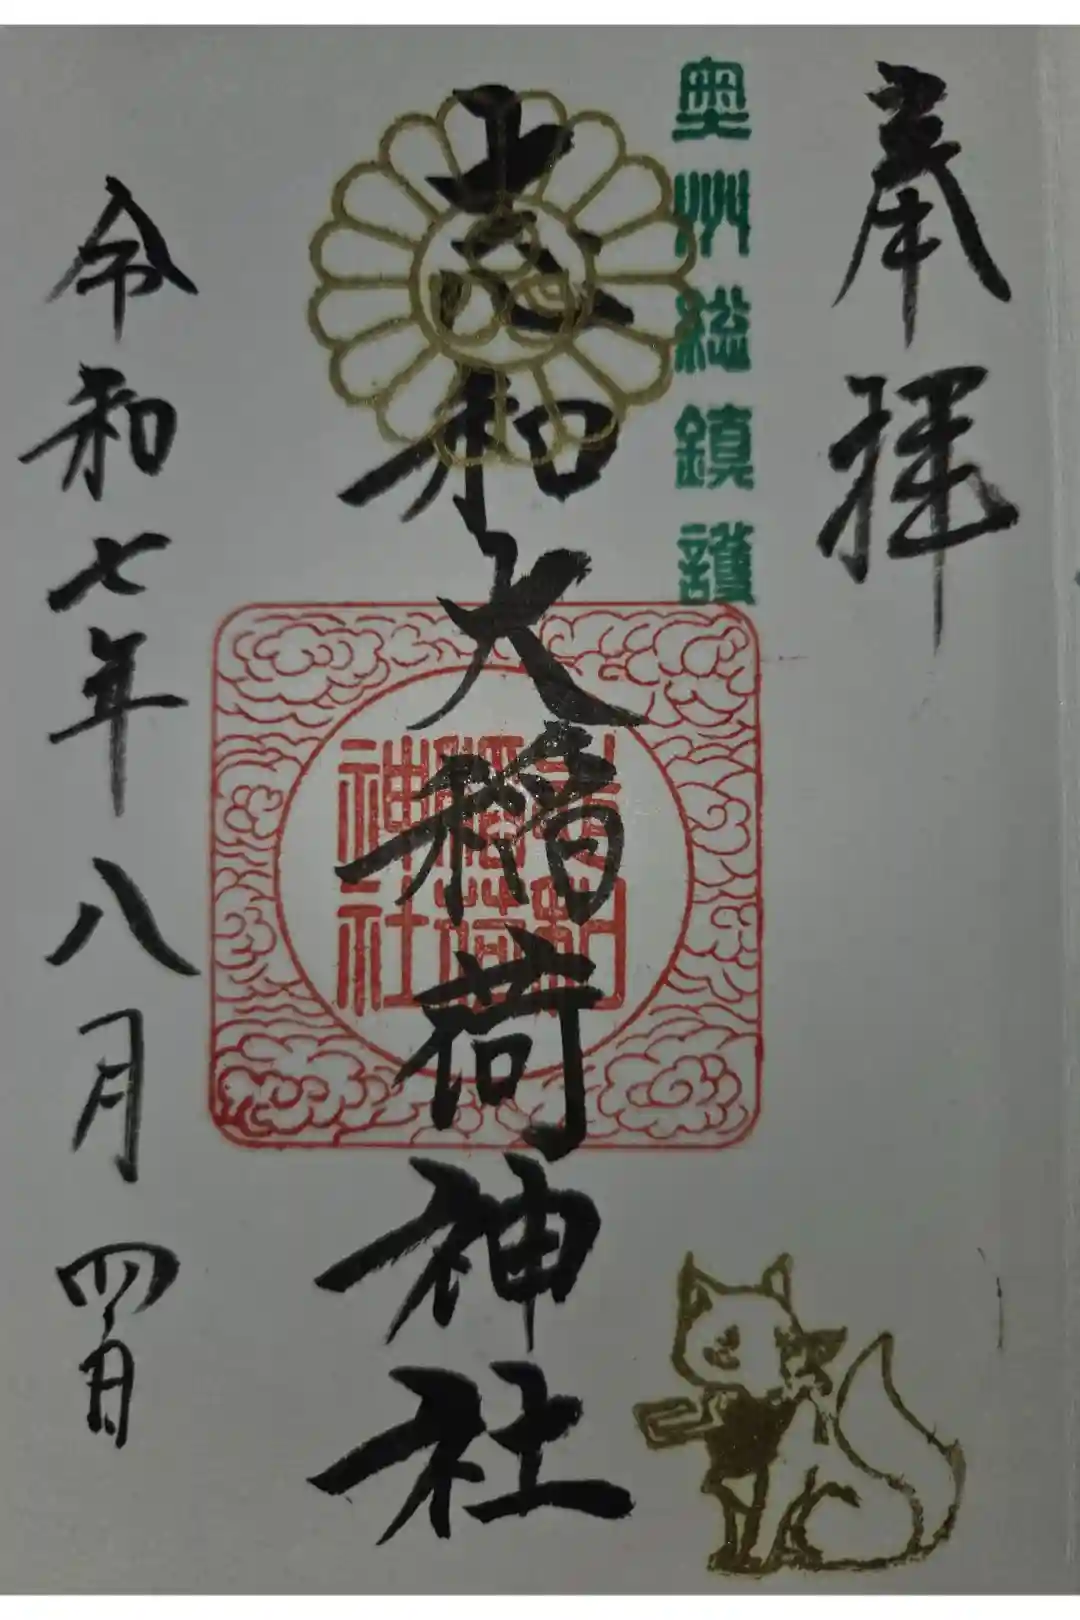 奉拝
奥州総鎮護
志和大稲荷神社
志和
稲荷
神社
令和七年八月四日